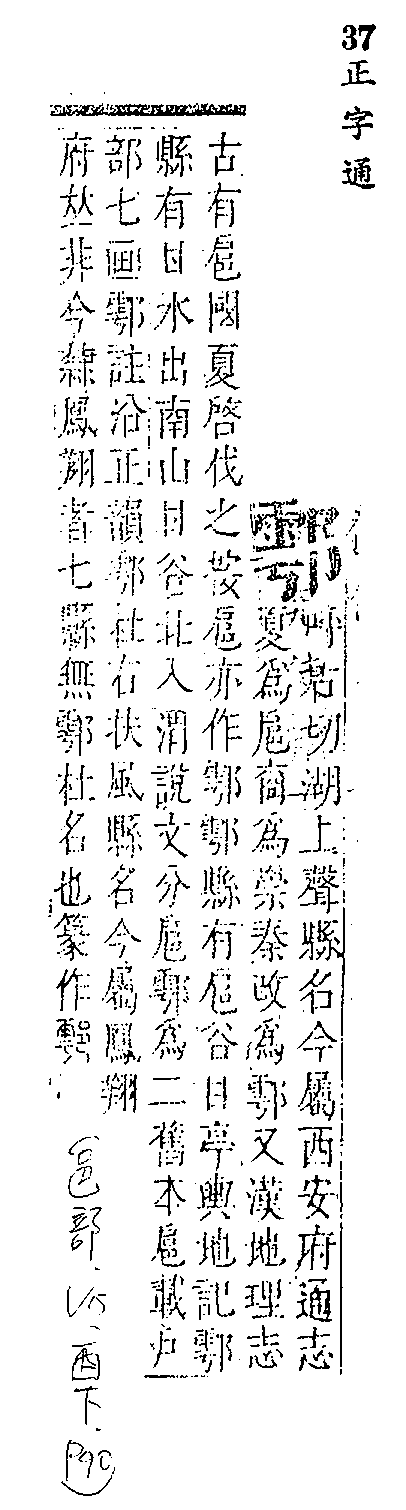 37
正字通
鄠
吽古切湖上聲縣名今屬西安府通志
夏為扈商為崇秦改為鄠又漢地理志
古有扈國夏啓伐之按扈亦作鄠鄠縣有扈谷甘亭輿地記鄠
縣有甘水出南山甘谷北入渭說文分扈鄠為二舊本扈載戶
部七画鄠註沿正韻鄠杜右扶風縣名今屬鳳翔
府𠀤非今隸鳳翔者七縣無鄠杜名也篆作
邑部.酉下.P90